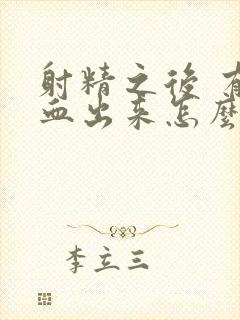 射精之後 有
血出来怎麼
李立三